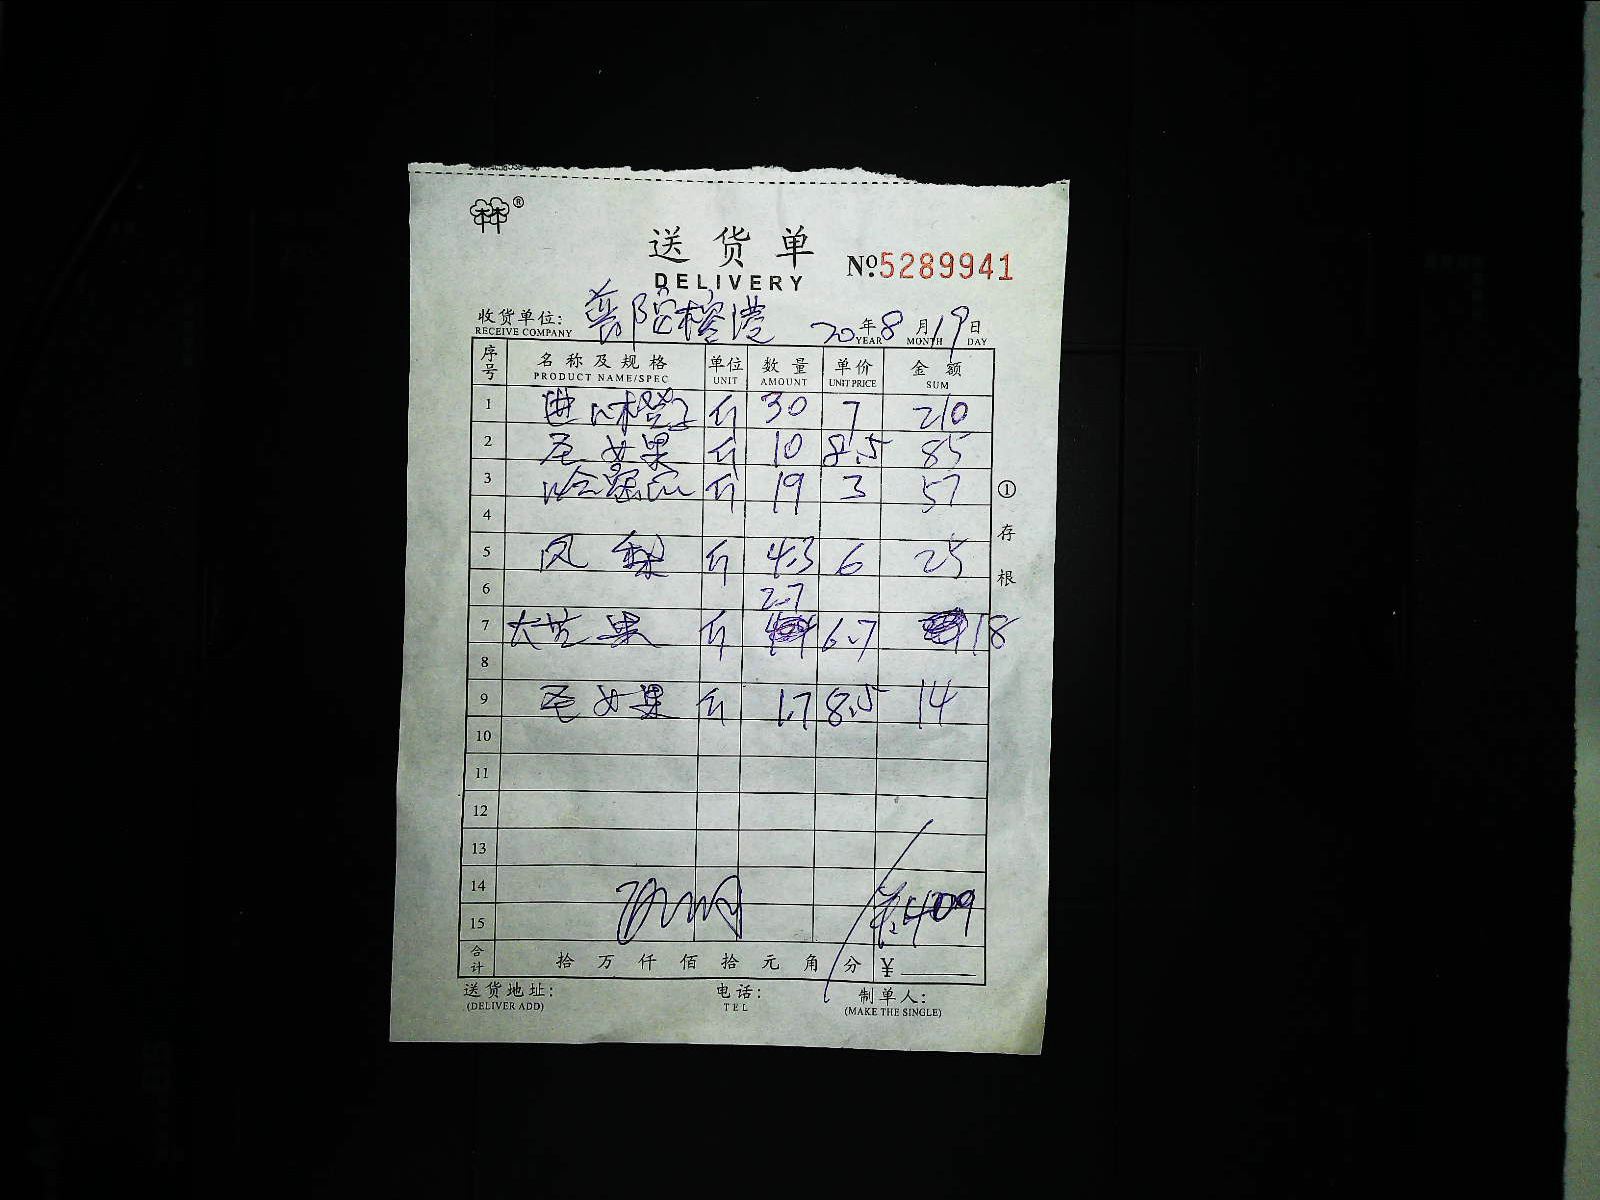 送货单
DELIVERY
№5289941
收货单位: 普陀榕港 20年8月19日
RECEIVE COMPANY YEAR MONTH DAY
序号 名称及规格 单位 数量 单价 金额
PRODUCT NAME/SPEC UNIT AMOUNT UNIT PRICE SUM
1 进口橙子 斤 30 7 210
2 百香果 斤 10 8.5 85
3 哈密瓜 斤 19 3 57
4
5 凤梨 斤 4.3 6 25
6 2.7
7 大芒果 斤 6.7 18
8
9 百香果 斤 1.7 8.5 14
10
11
12
13
14
15 ¥:409
合计 拾 万 仟 佰 拾 元 角 分 ¥
送货地址: 电话: 制单人:
(DELIVER ADD) TEL (MAKE THE SINGLE)
①存根